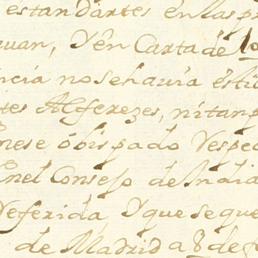 estandartes en las pr
guan, Y én Carta de lo
ncia no se havia ésti
tes Alferezes, ni tanp
nese óbispado Respec
énel Consejo de India
Referida Y que se gue
de Madrid a 8 de